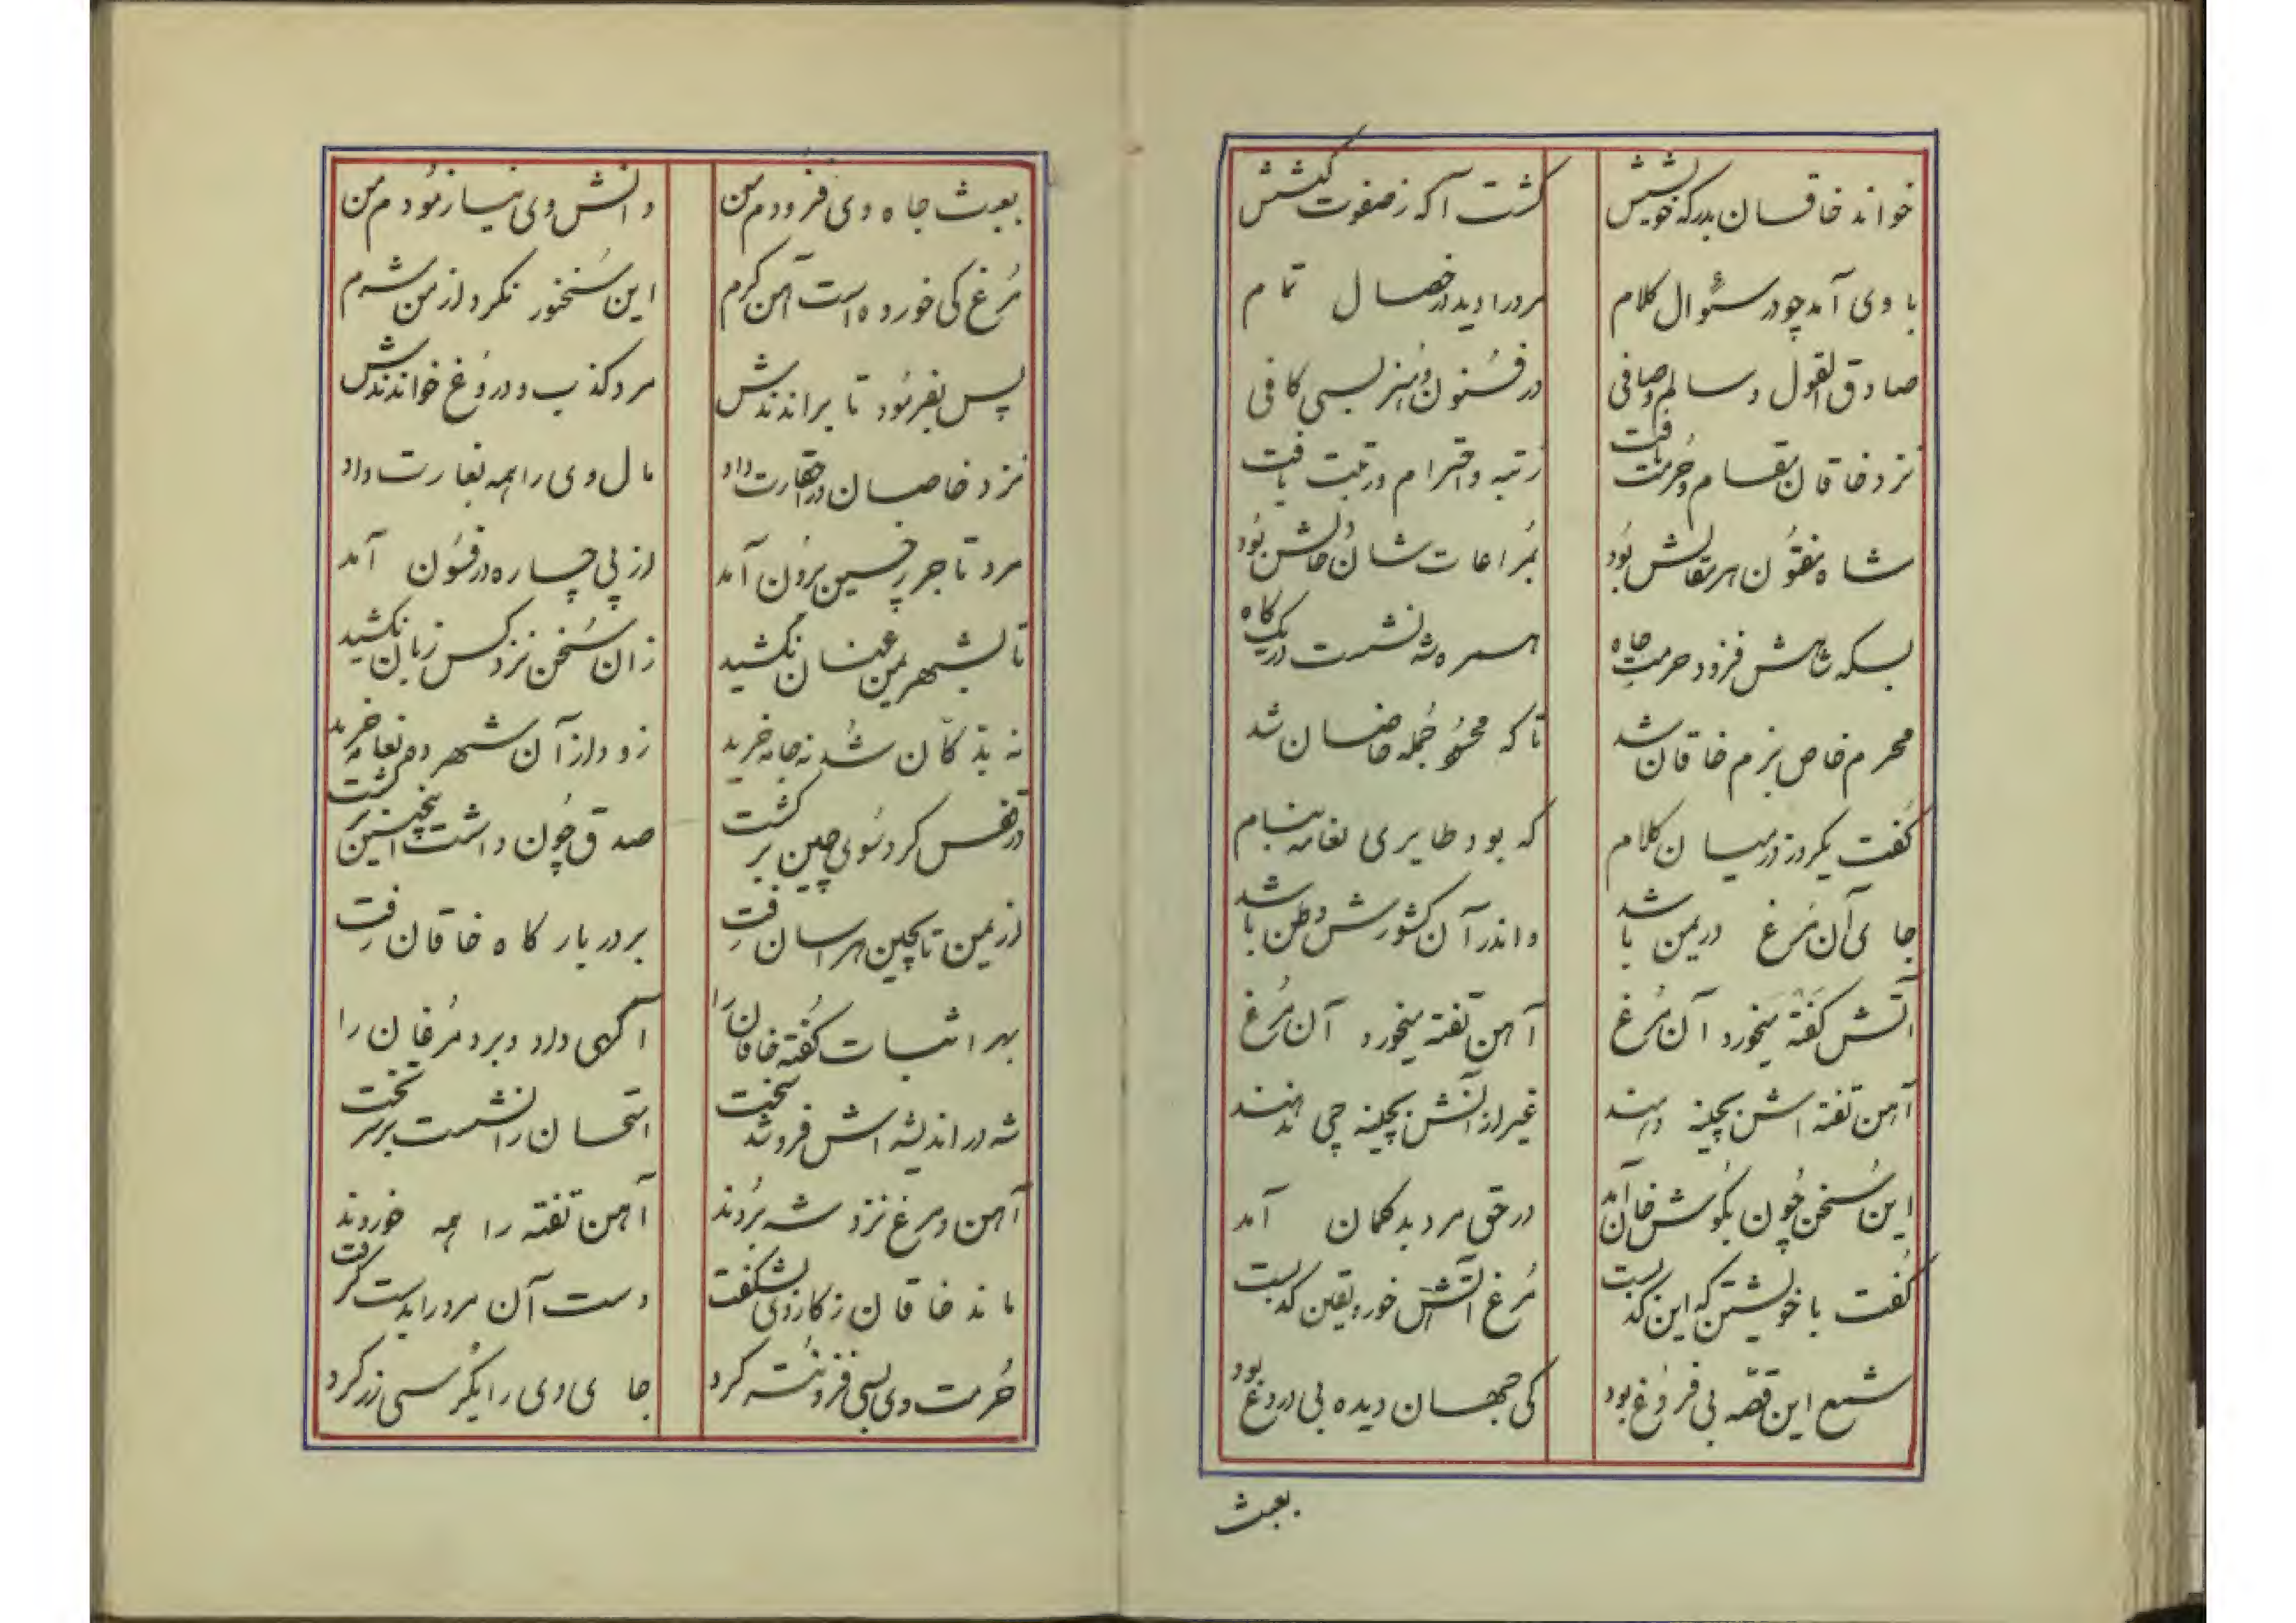 خواند خاقسان بدرکه خویشش گشت آگه ز صفوت کیشش
با وی آمد چو در سئوال کلام مرد را دید در خصال تمام
صادق القول و سالم و صافی در فسون و هنر بسی کافی
نزد خاقان مقام و حرمت یافت رتبه و احترام و رتبت یافت
شاه مفتون هر مقالش بود بمراعات شان و حالش بود
بسکه شاهش فزود حرمت و جاه همره شه نشست در یک گاه
محرم خاص بزم خاقان شد تا که محسود جمله خاصان شد
گفت یکروز در میان کلام که بود طایری نعامه بنام
جای آن مرغ در یمن باشد و اندر آن کشورش وطن باشد
آتش کفته میخورد آن مرغ آهن تفته میخورد آن مرغ
آهن تفته اش بچینه دهند غیر از آتش بچینه چی ندهند
این سخن چون بگوش خاقان آمد در حق مرد بدگمان آمد
گفت با خویشتن که این کذبست مرغ آتش خورد یقین کذبست
شمع این قصه بی فروغ بود کی جهان دیده بی دروغ بود
بعبث
بعبث جاه وی فزودم من دانش وی نیازمودم من
مرغ کی خورده است آهن گرم این سخنور نکرد از من شرم
پس بفرمود تا براندندش مرد کذب و دروغ خواندندش
نزد خاصان در حقارت داد مال وی را همه بغارت داد
مرد تاجر ز چین برون آمد از پی چاره در فسون آمد
تا بشهر یمن عنان نکشید زان سخن نزد کس زبان نکشید
نه بدکان شد نه جامه خرید زود از آن شهر ده نعامه خرید
در قفس کرد سوی چین برگشت صدق چون داشت اینچنین برگشت
از یمن تا بچین هراسان رفت بر در بارگاه خاقان رفت
بهر اثبات گفته خاقان را آگهی داد و برد مرغان را
شه در اندیشه اش فرو شد سخت امتحان را نشست بر سر تخت
آهن و مرغ نزد شه بردند آهن تفته را همه خوردند
ماند خاقان ز کار وی بشگفت دست آن مرد را بدست گرفت
حرمت وی بسی فزونتر کرد جای وی را بکرسی زر کرد